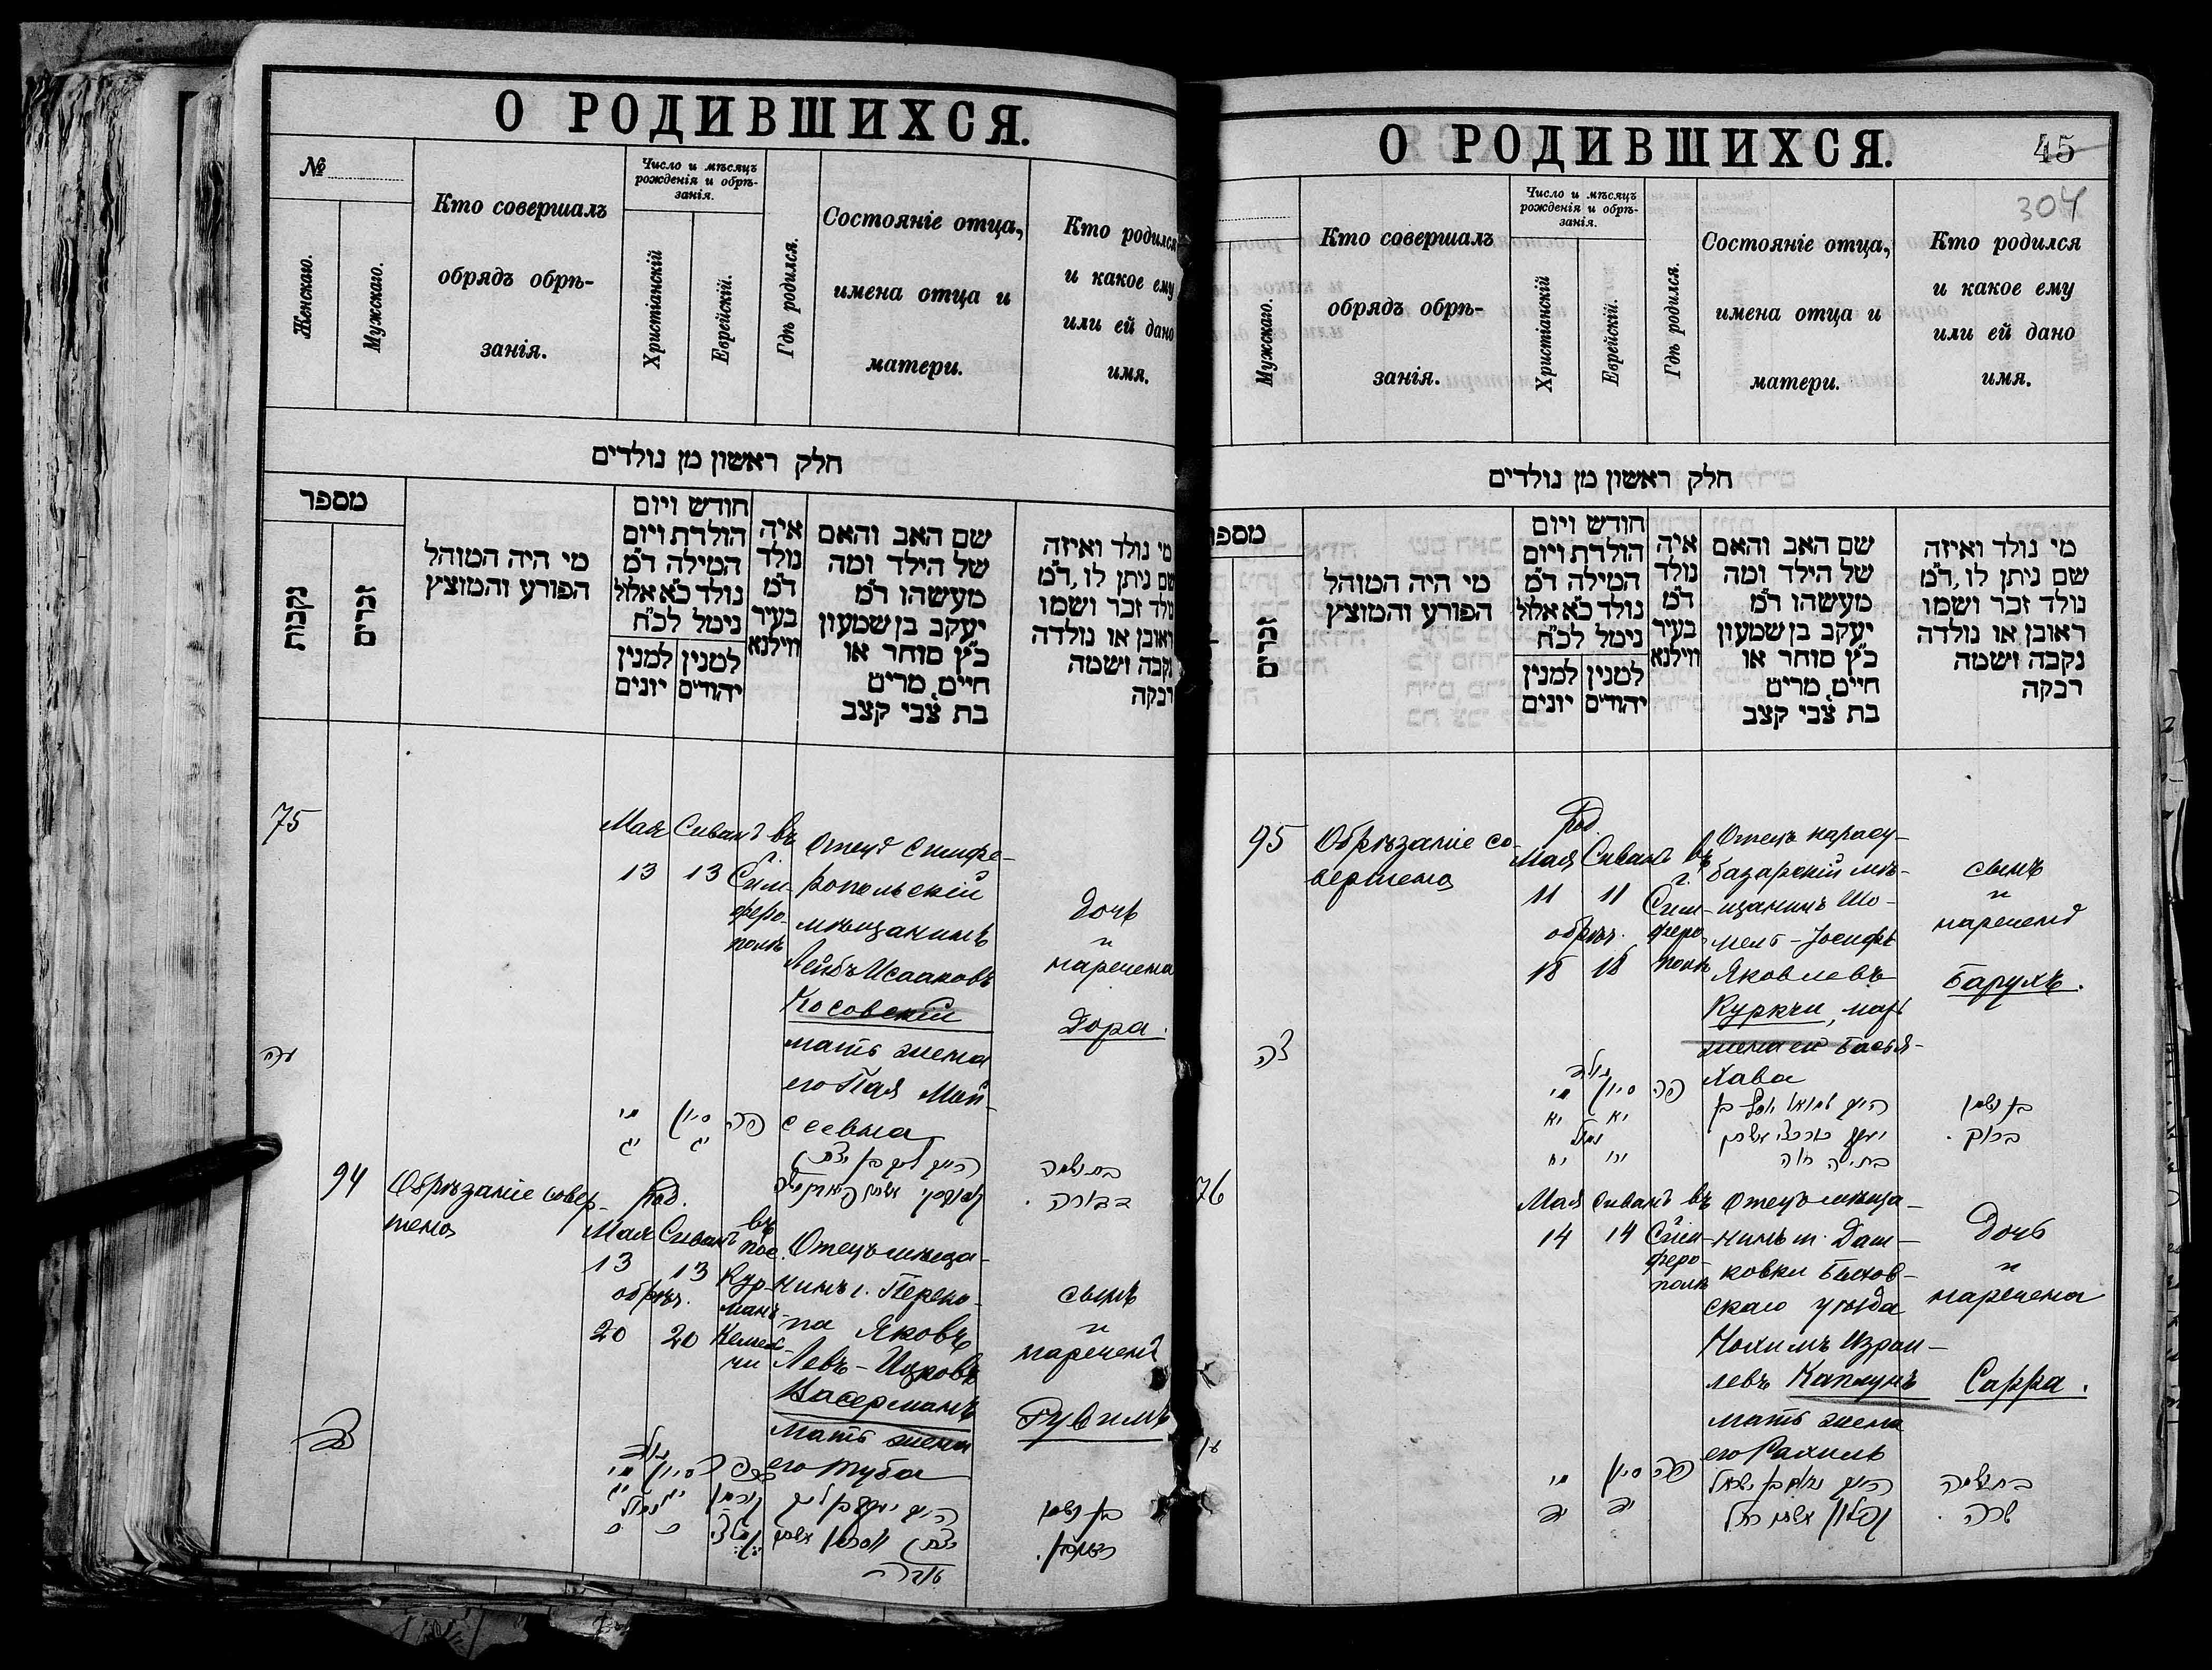 О РОДИВШИХСЯ.
№
Женскаго.
Мужскаго.
Кто совершалъ
обрядъ обрѣ-
занія.
Число и мѣсяцъ
рожденія и обрѣ-
занія.
Христіанскій
Еврейскій.
Гдѣ родился.
Состояніе отца,
имена отца и
матери.
Кто родился
и какое ему
или ей дано
имя.
חלק ראשון מן נולדים
מספר
נקבות
זכרים
מי היה המוהל
הפורע והמוצץ
חודש ויום
הולדת ויום
המילה ד״מ
נולד כ״א אלול
נימל לכ״ח
למנין יהודים
למנין יונים
איה
נולד
ד״מ
בעיר
ווילנא
שם האב והאם
של הילד ומה
מעשהו ד״מ
יעקב בן שמעון
כ״ץ סוחר או
חיים, מרים
בת צבי קצב
מי נולד ואיזה
שם ניתן לו, ד״מ
נולד זכר ושמו
ראובן או נולדה
נקבה ושמה
רבקה
75
Мая Сиванъ въ
13 13
г. Сим-
феро-
полѣ
Отецъ Симфе-
ропольскій
мѣщанинъ
Лейбъ Исааковъ
Косовскій
мать жена
его Пая Мой-
сеевна
Дочь
и
наречена
Дора.
עה
סיון
פה
יג יג
94
Обрѣзаніе совер-
шено
Род.
Мая Сиванъ
13 13
обрѣз.
20 20
въ
пос.
Кур-
манъ
Кемель-
чи
Отецъ мѣща-
нинъ г. Переко-
па Яковъ
Левъ-Ицковъ
Васерманъ
мать жена
его Туба
сынъ
и
нареченъ
Рувимъ
צד
О РОДИВШИХСЯ.
45
304
Мужскаго.
Кто совершалъ
обрядъ обрѣ-
занія.
Число и мѣсяцъ
рожденія и обрѣ-
занія.
Христіанскій
Еврейскій.
Гдѣ родился.
Состояніе отца,
имена отца и
матери.
Кто родился
и какое ему
или ей дано
имя.
חלק ראשון מן נולדים
זכרים
מי היה המוהל
הפורע והמוצץ
חודש ויום
הולדת ויום
המילה ד״מ
נולד כ״א אלול
נימל לכ״ח
למנין יהודים
למנין יונים
איה
נולד
ד״מ
בעיר
ווילנא
שם האב והאם
של הילד ומה
מעשהו ד״מ
יעקב בן שמעון
כ״ץ סוחר או
חיים, מרים
בת צבי קצב
מי נולד ואיזה
שם ניתן לו, ד״מ
נולד זכר ושמו
ראובן או נולדה
נקבה ושמה
רבקה
95
Обрѣзаніе со-
вершено
Род.
Мая Сиванъ
11 11
обрѣз.
18 18
въ
г.
Сим-
феро-
полѣ
Отецъ карасу-
базарскій мѣ-
щанинъ Шо-
мель-Іосифъ
Яковлевъ
Куркчи, мать
жена его Басья-
Хава
сынъ
и
нареченъ
Барухъ.
צה
סיון
פה
יא יא
ברוך.
76
Мая Сиванъ въ
14 14
Сим-
феро-
полѣ
Отецъ мѣща-
нинъ м. Даш-
ковки Быхов-
скаго уѣзда
Нохимъ Израи-
левъ Каплунъ
мать жена
его Рахиль
Дочь
и
наречена
Сарра.
סיון
פה
יד יד
שרה.